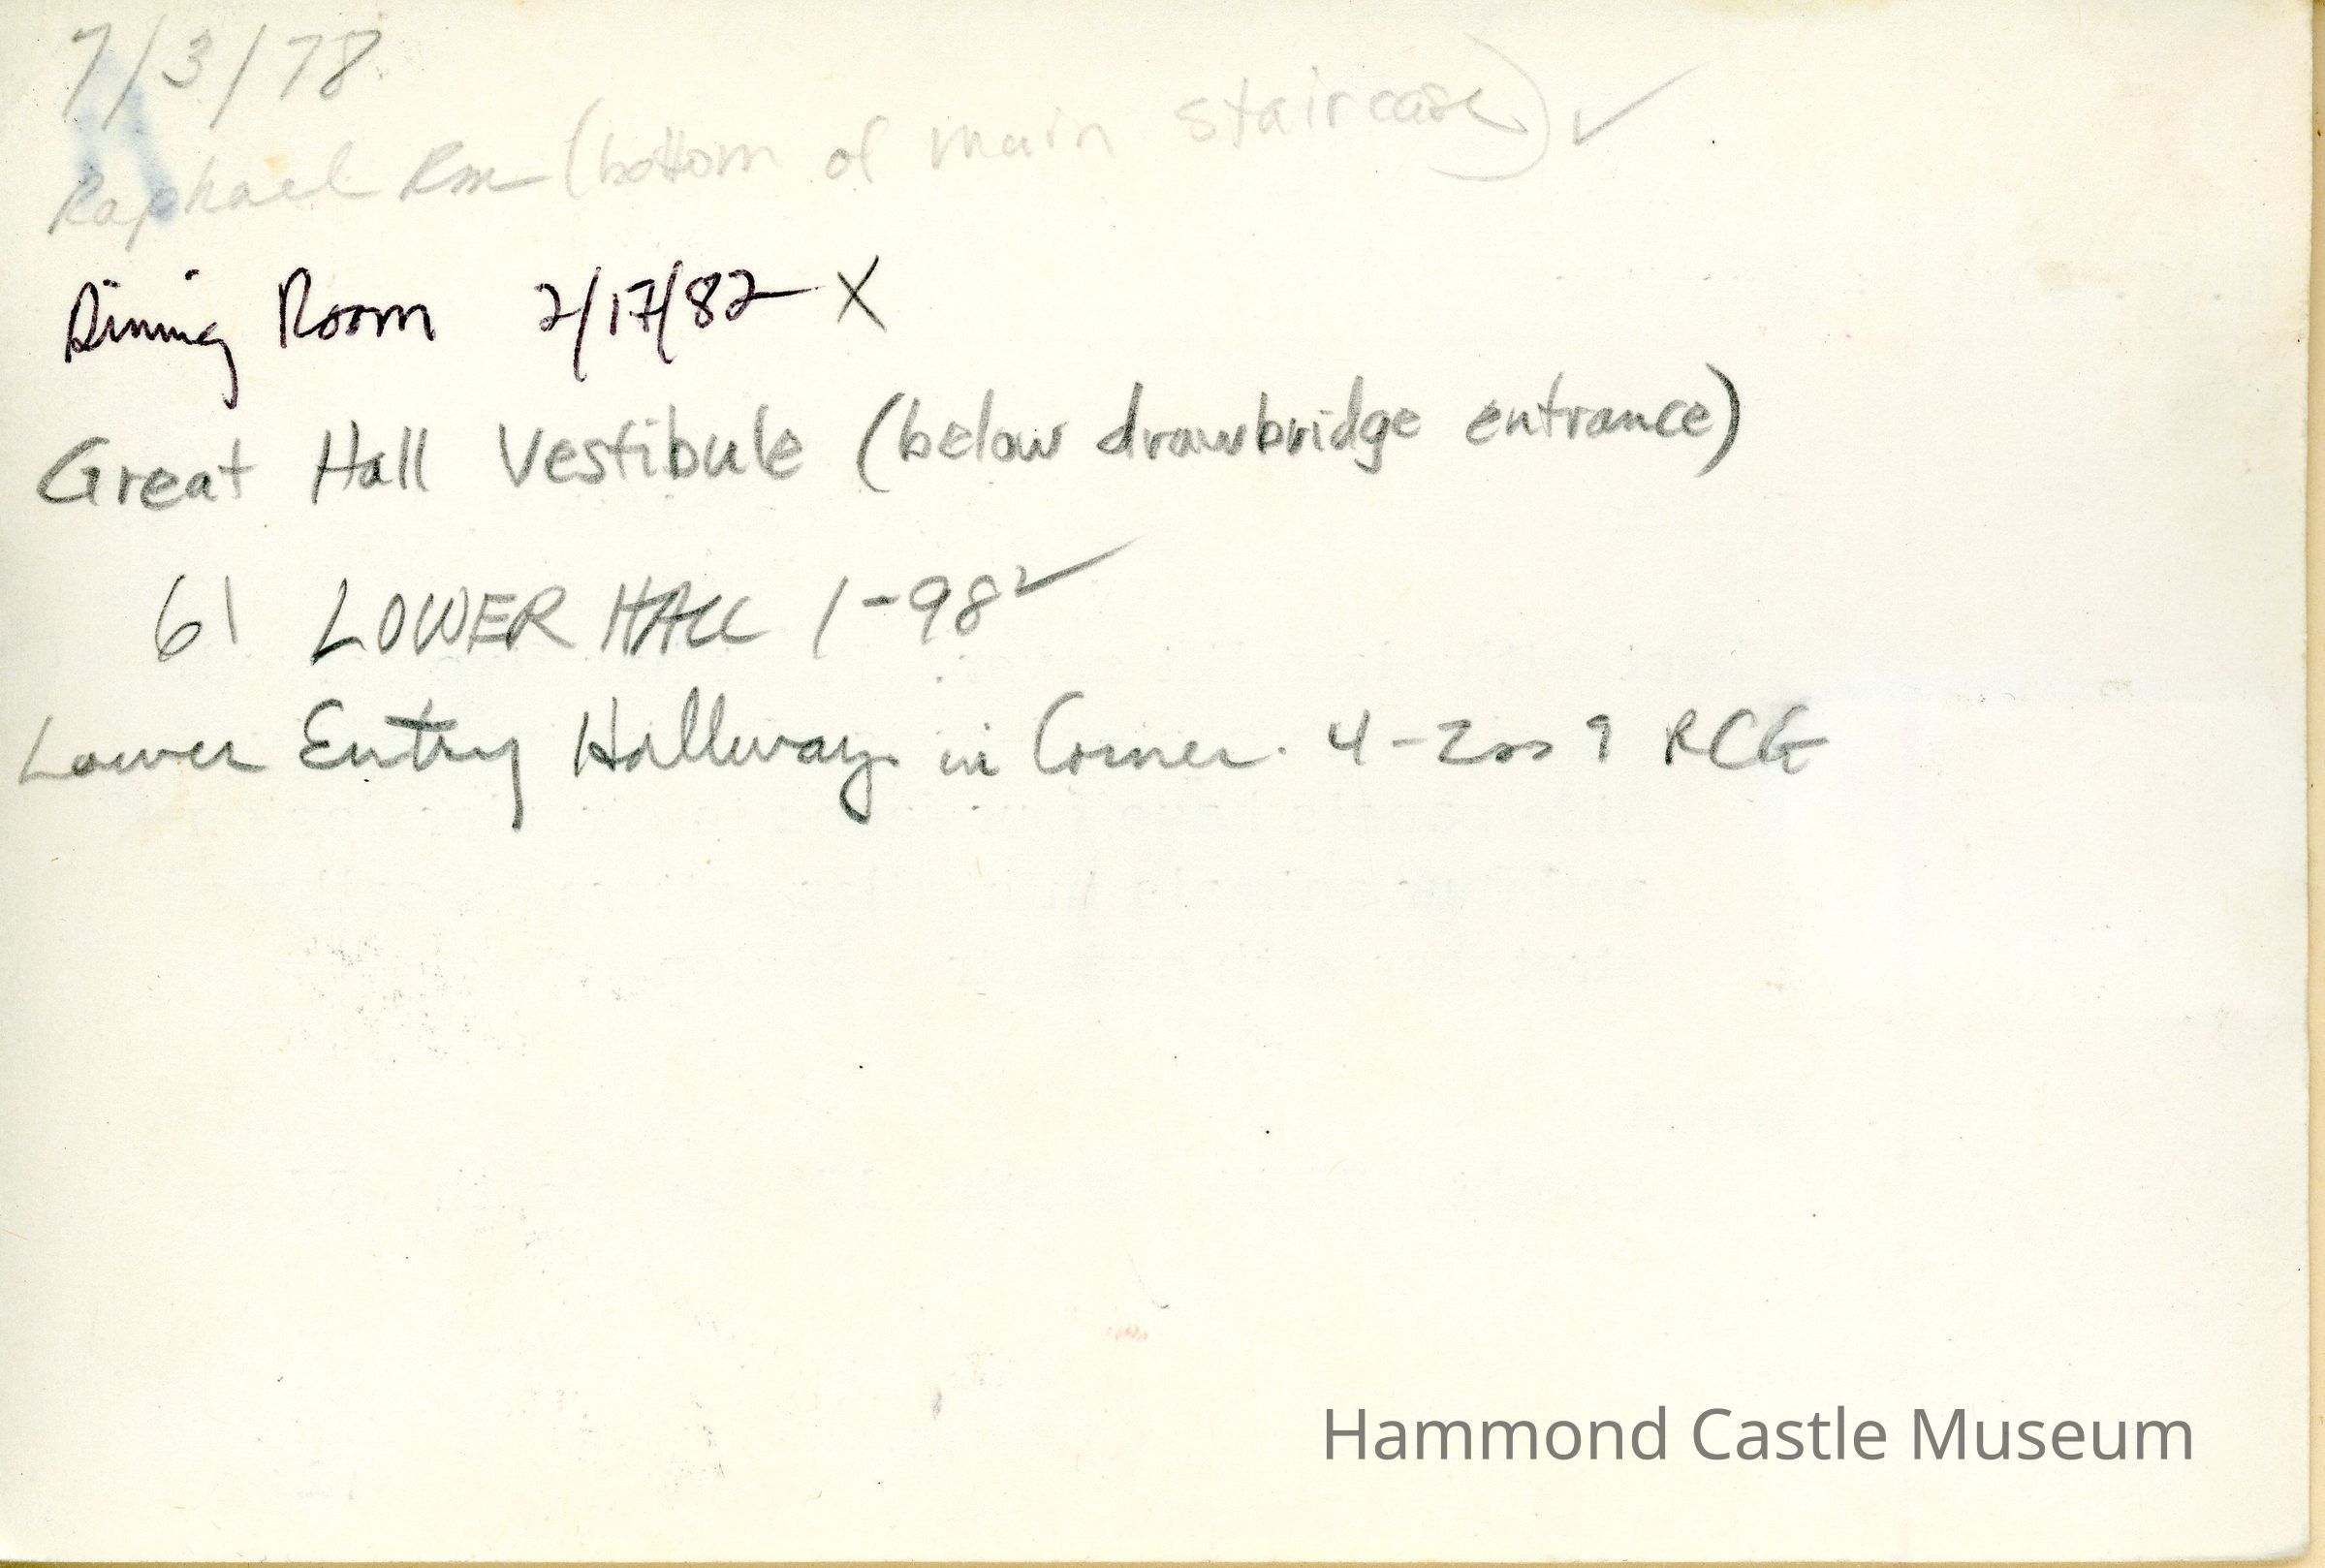 7/3/78
Raphael Rm (bottom of main staircase) ✓
Dining Room 2/17/82 X
Great Hall Vestibule (below drawbridge entrance)
61 LOWER HALL 1-98 ✓
Lower Entry Hallway in Corner. 4-2009 RCG
Hammond Castle Museum